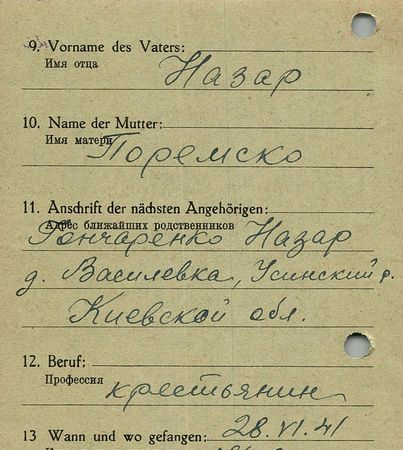 9. Vorname des Vaters:
Имя отца
Назар
10. Name der Mutter:
Имя матери
Поремско
11. Anschrift der nächsten Angehörigen:
Адрес ближайших родственников
Гончаренко Назар
д. Василевка, Усинский р.
Киевской обл.
12. Beruf:
Профессия
крестьянин
13 Wann und wo gefangen: 28.VI.41